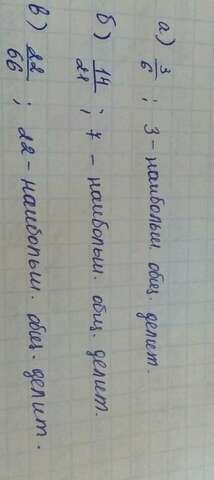 а) 3/6 ; 3 - наибольш. общ. делит.
б) 14/21 ; 7 - наибольш. общ. делит.
в) 22/66 ; 22 - наибольш. общ. делит.